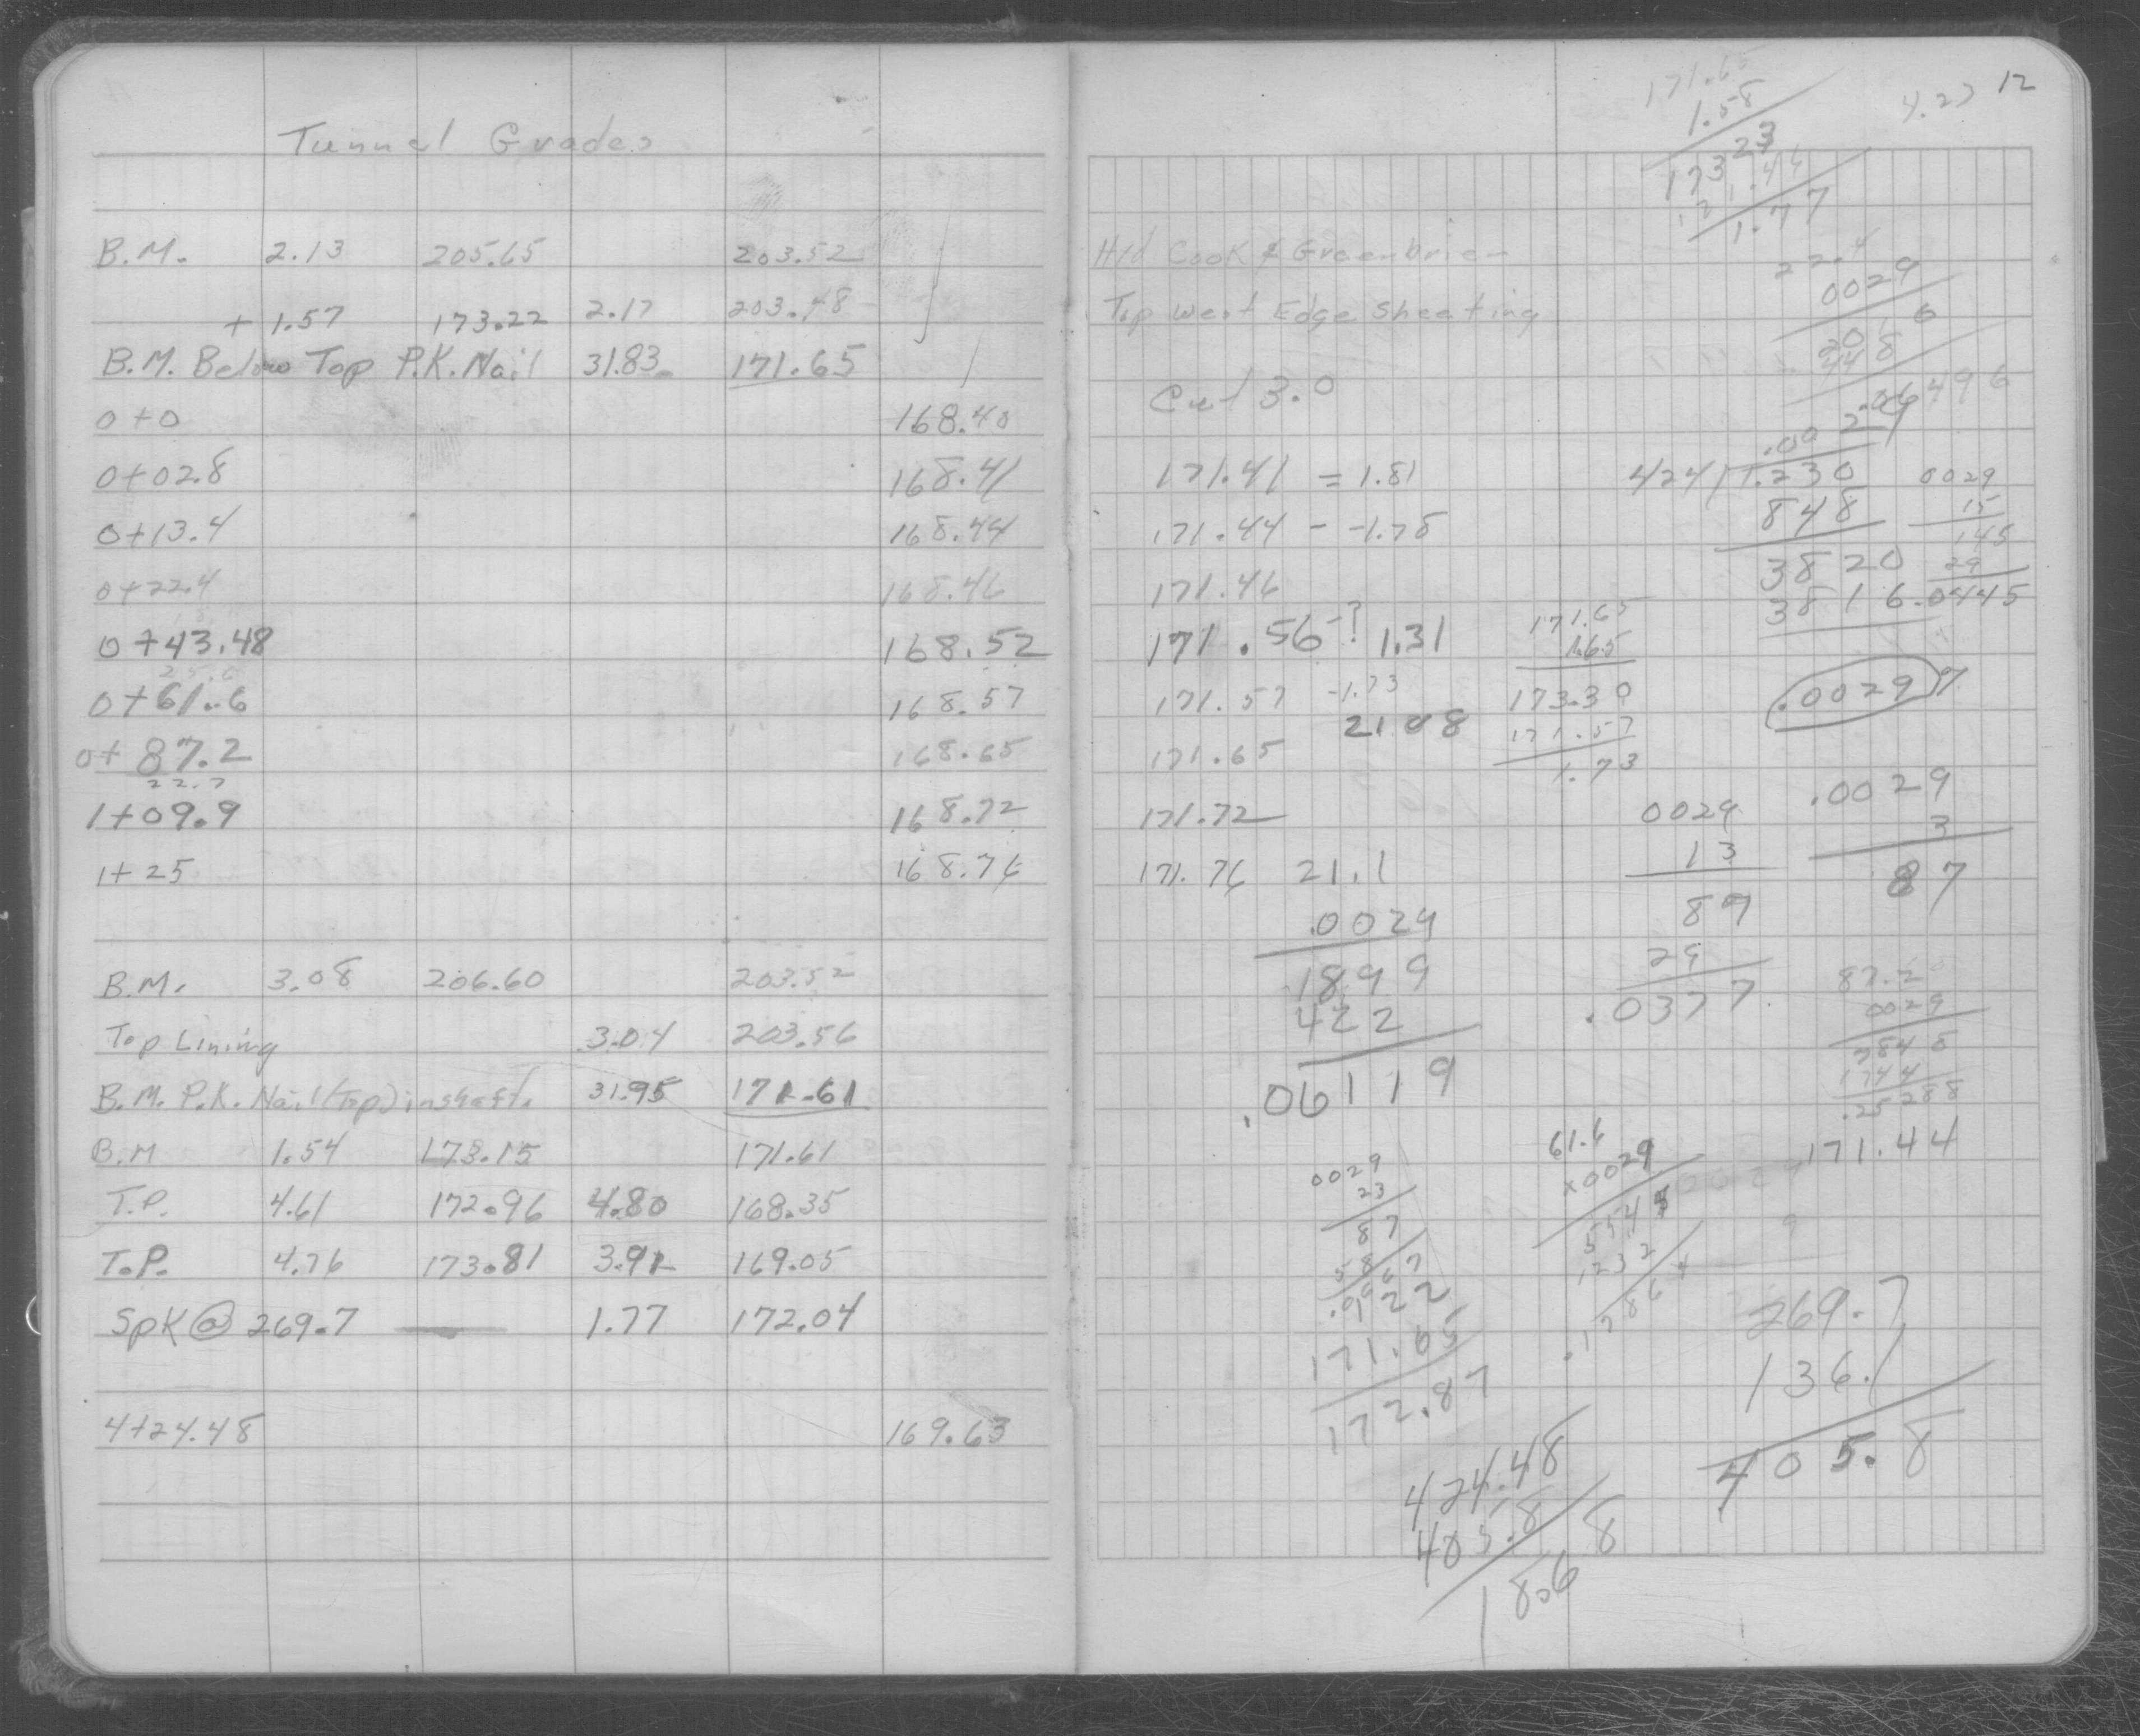 Tunnel Grades
B.M. 2.13 205.65 203.52
+ 1.57 173.22 2.17 203.48
B.M. Below Top P.K. Nail 31.83 171.65
0+0 168.40
0+02.8 168.41
0+13.4 168.44
0+22.4 168.46
0+43.48 168.52
0+61.6 168.57
0+87.2 168.65
22.7
1+09.9 168.72
1+25 168.76
B.M. 3.08 206.60 203.52
Top Lining 3.04 203.56
B.M. P.K. Nail (Top) in shaft. 31.95 171.61
B.M 1.54 173.15 171.61
T.P. 4.61 172.96 4.80 168.35
T.P. 4.76 173.81 3.91 169.05
Spk @ 269.7 — 1.77 172.04
4+24.48 169.63
12
4.27
171.65
1.58
173 23
171.46
1.77
Hyd Cook & Greenbrier
Top West Edge Sheeting
Cut 3.0
22.4
0029
2016
448
.06496
171.41 = 1.81
171.44 - -1.78
171.46
171.56-? 1.31
171.57 -1.73
21.08
171.65
171.72
171.76 21.1
.0029
1899
422
.06119
.0029
424/1.230
848
3820
3816
.00297
0029
15
145
29
.0445
171.65
1.65
173.30
171.57
1.73
0029
13
87
29
.0377
.0029
3
87
87.2
0029
7848
1744
.25288
171.44
0029
23
87
58
.0667
1.22
171.65
172.87
61.6
x0029
5544
1232
.17864
269.7
136.1
405.8
424.48
405.8
18.68